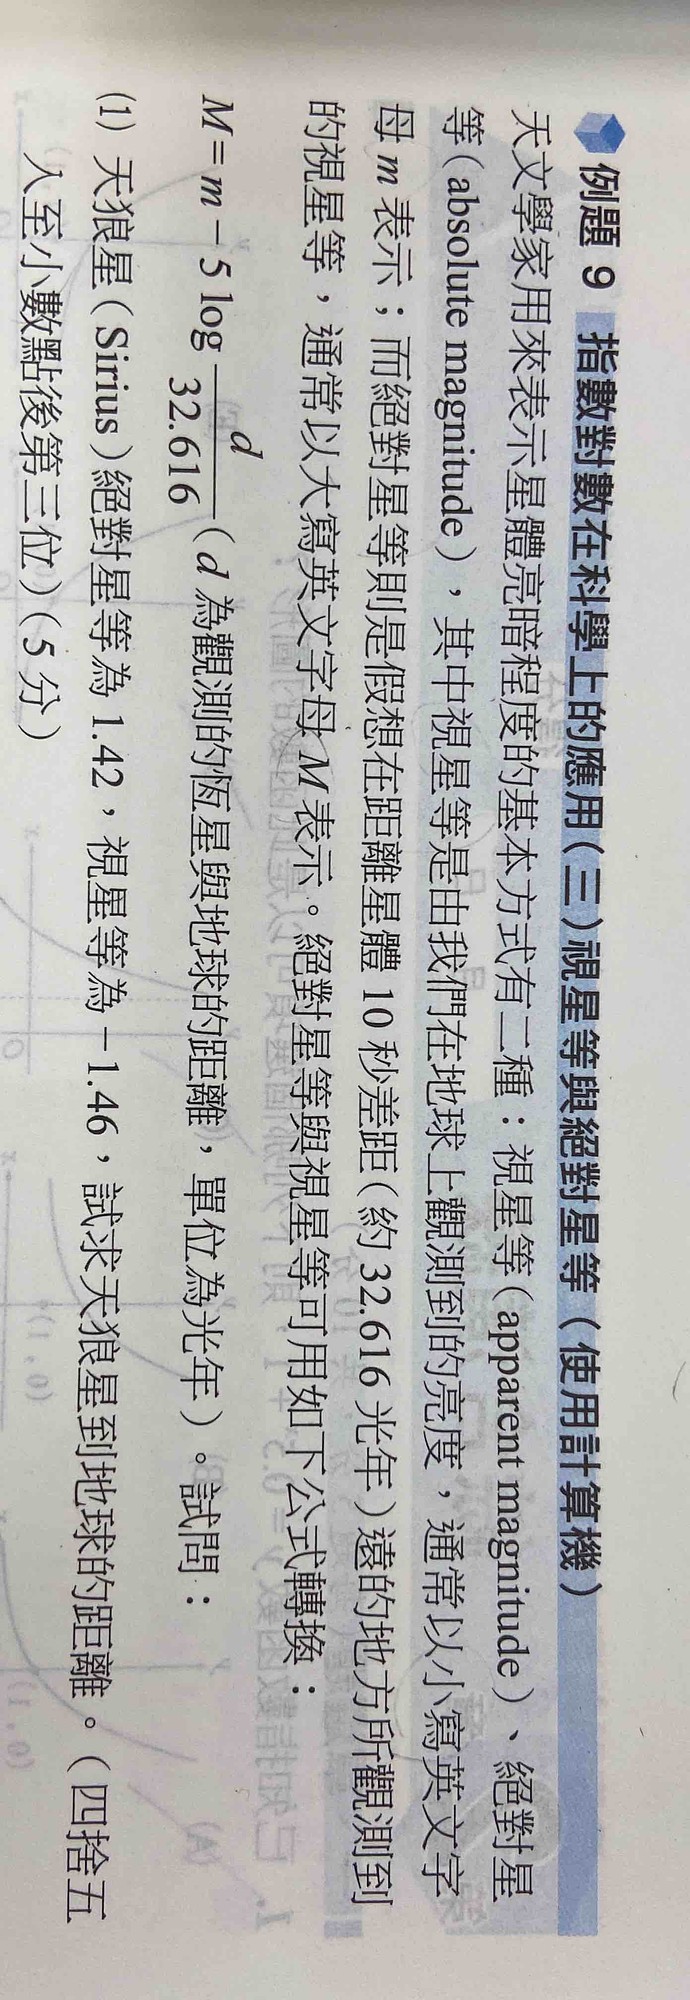 例題 9 指數對數在科學上的應用(三)視星等與絕對星等(使用計算機)
天文學家用來表示星體亮暗程度的基本方式有二種：視星等(apparent magnitude)、絕對星
等(absolute magnitude)，其中視星等是由我們在地球上觀測到的亮度，通常以小寫英文字
母 m 表示；而絕對星等則是假想在距離星體 10 秒差距(約 32.616 光年)遠的地方所觀測到
的視星等，通常以大寫英文字母 M 表示。絕對星等與視星等可用如下公式轉換：
M = m − 5 log d/32.616 (d 為觀測的恆星與地球的距離，單位為光年)。試問：
(1) 天狼星(Sirius)絕對星等為 1.42，視星等為 −1.46，試求天狼星到地球的距離。(四捨五
入至小數點後第三位)(5 分)